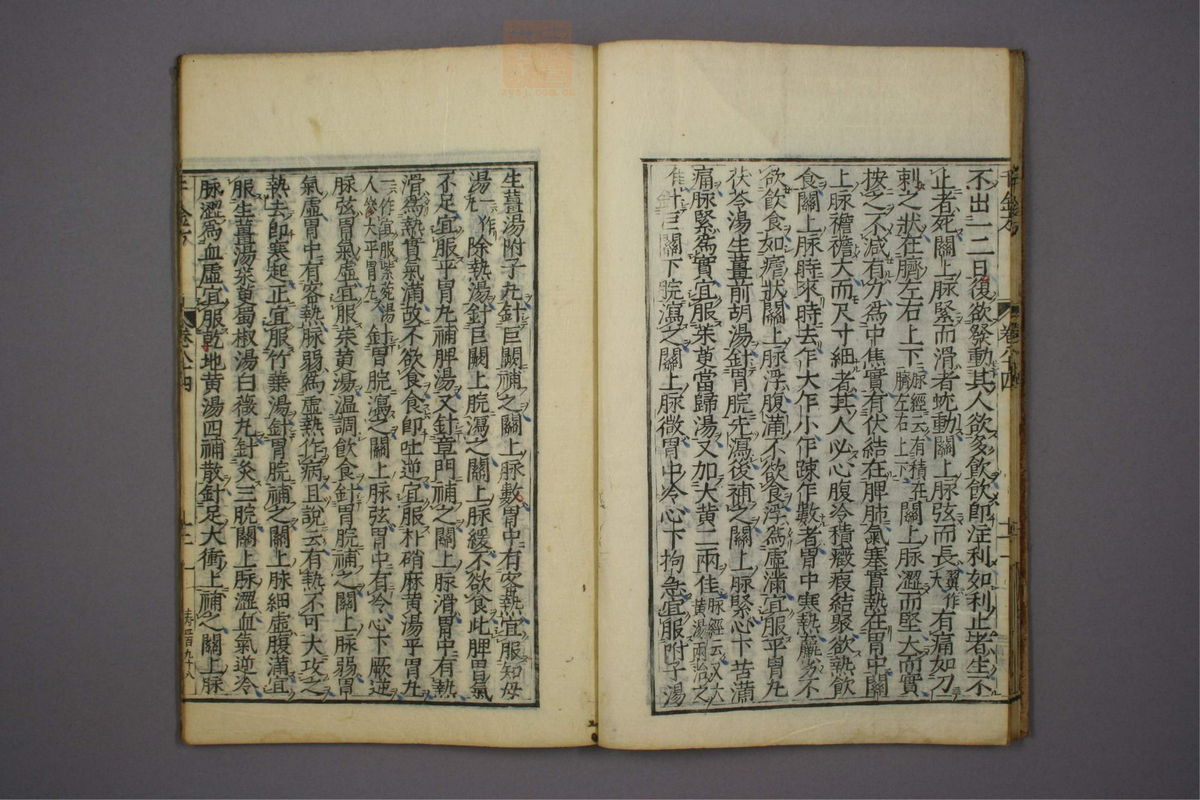 不出一二日復欲發動其人欲多飲飲即注利如利止者生不
止者死關上脉緊而滑者蚘動關上脉弦而長大翼作有痛如刀
刺之狀在臍左右上下脉經云有積在臍左右上下關上脉澀而堅大而實
按之不減有力為中焦實有伏結在脾肺氣塞實熱在胃中關
上脉襜襜大而尺寸細者其人必心腹冷積癥瘕結聚欲熱飲
食關上脉時來時去乍大乍小乍疎乍數者胃中寒熱羸劣不
欲飲食如瘧狀關上脉浮腹滿不欲食浮為虛滿宜服平胃丸
茯苓湯生薑前胡湯針胃脘先瀉後補之關上脉緊心下苦滿
痛脉緊為實宜服茱萸當歸湯又加大黃二兩佳脉經云又大黃湯兩治之
佳針巨闕下脘瀉之關上脉微胃中冷心下拘急宜服附子湯
生薑湯附子丸針巨闕補之關上脉數胃中有客熱宜服知母
湯一作丸除熱湯針巨闕上脘瀉之關上脉緩不欲食此脾胃氣
不足宜服平胃丸補脾湯又針章門補之關上脉滑胃中有熱
滑為熱實氣滿故不欲食食即吐逆宜服朴硝麻黃湯平胃丸
一云作宜服紫菀湯人參大平胃丸針胃脘瀉之關上脉弦胃中有冷心下厥逆
脉弦胃氣虛宜服茱萸湯溫調飲食針胃脘補之關上脉弱胃
氣虛胃中有客熱脉弱為虛熱作病且說云有熱不可大攻之
熱去即寒起正宜服竹葉湯針胃脘補之關上脉細虛腹滿宜
服生薑湯茱萸蜀椒湯白薇丸針灸三脘關上脉澀血氣逆冷
脉澀為血虛宜服乾地黃湯四補散針足大衝上補之關上脉
千金方
卷六十四
十二